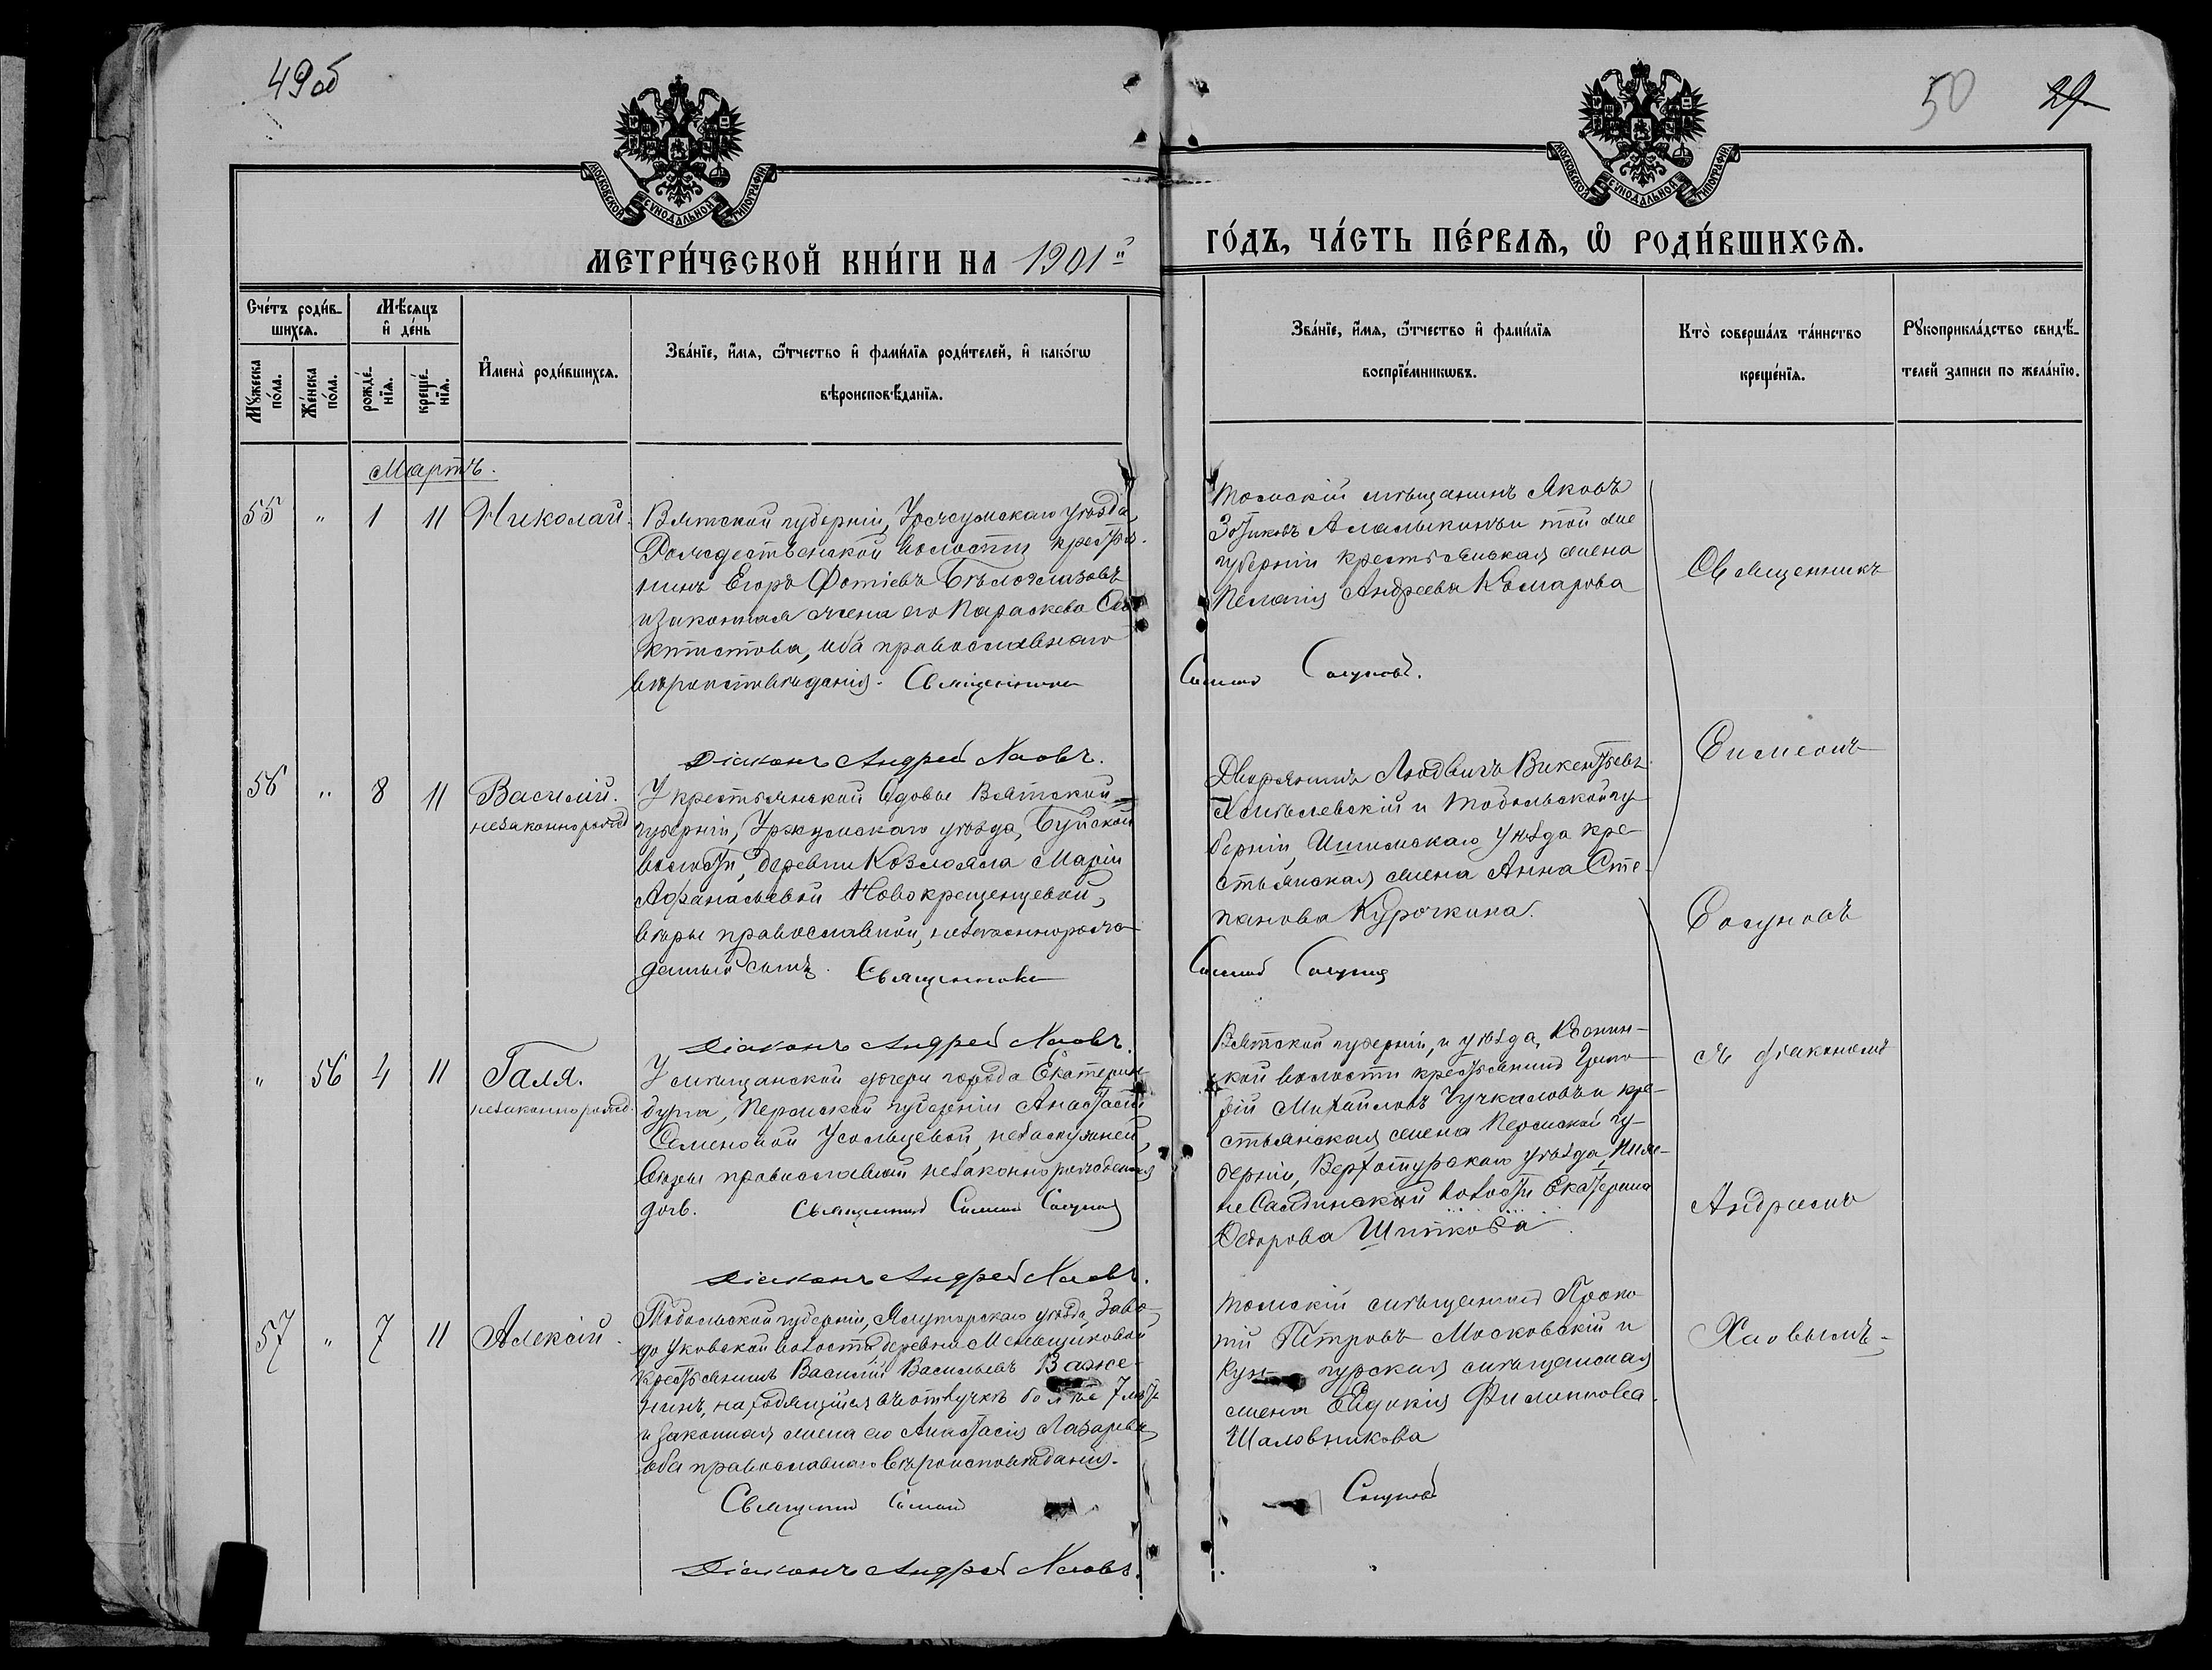 49об
50 29
МОСКОВСКОЙ СѴНОДАЛЬНОЙ ТИПОГРАФІИ
МОСКОВСКОЙ СѴНОДАЛЬНОЙ ТИПОГРАФІИ
МЕТРИ́ЧЕСКОЙ КНИ́ГИ НА 1901й
ГО́ДЪ, ЧА́СТЬ ПЕ́РВАЯ, Ѽ РОДИ́ВШИХСЯ.
Сче́тъ роди́в-
шихся.
Мѣ́сяцъ
и҆ де́нь
Мꙋ́жеска
по́ла.
Же́нска
по́ла.
рожде́-
нїя.
креще́-
нїя.
И҆мена̀ роди́вшихся.
Зва́нїе, и҆́мя, ѻ҆́тчество и҆ фами́лїя роди́телей, и҆ како́гѡ
вѣроисповѣ́данїя.
Зва́нїе, и҆́мя, ѻ҆́тчество и҆ фами́лїя
воспрїе́мникѡвъ.
Кто̀ соверша́лъ та́инство
креще́нїя.
Рꙋкоприкла́дство свидѣ́-
телей записи по жела́нїю.
Мартъ.
55 " 1 11 Николай.
Вятской губерніи, Уржумскаго уѣзда,
Рождественской волости крестья-
нинъ Егоръ Фотіевъ Бѣлоглазовъ
и законная жена его Параскева
оба православнаго
вѣроисповѣданія. Священникъ
Діаконъ Андрей
Томскій мѣщанинъ Яковъ
Зотиковъ и той же
губерніи крестьянская жена
Пелагія Андреева Комарова
Симеонъ Сосуновъ.
Священникъ
56 " 8 11 Василій.
незаконнорожд
У крестьянской вдовы Вятской
губерніи, Уржумскаго уѣзда, Буйской
волости, деревни Козлояла Маріи
Афанасьевой Новокрещенцевой,
вѣры православной, незаконнорож-
денный сынъ. Священникъ
Діаконъ Андрей
Дворянинъ Людвигъ Викентьевъ
и Тобольской гу-
берніи, Ишимскаго уѣзда кре-
стьянская жена Анна Сте-
панова Курочкина.
Симеонъ Сосуновъ
Симеонъ
Сосуновъ
" 56 4 11 Галя.
незаконнорожд.
У мѣщанской дочери города Екатерин-
бурга, Пермской губерніи Анастасіи
Семеновой Усольцевой, незамужней,
вѣры православной незаконнорожденная
дочь. Священникъ Симеонъ Сосуновъ
Діаконъ Андрей
Вятской губерніи, и уѣзда,
кой волости крестьянинъ
Михайловъ Чучкаловъ и кре-
стьянская жена Пермской гу-
берніи, Верхотурскаго уѣзда, Ниж-
не Салдинской волости Екатерина
Федорова Шипкова.
съ діакономъ
Андреемъ
57 " 7 11 Алексій.
Тобольской губерніи, Ялуторскаго уѣзда, Заво-
до уковской волости деревни Меньщиковой
крестьянинъ Василій Васильевъ Важе-
нинъ, находящійся въ отлучкѣ болѣе 7 лѣтъ
и законная жена его Анастасія Лазарева,
оба православнаго вѣроисповѣданія.
Священникъ Симеонъ
Діаконъ Андрей
Томскій мѣщанинъ Проко-
пій Петровъ Московскій и
Кун гурская мѣщанская
жена Евдокія Филиппова
Шаловникова
Сосуновъ